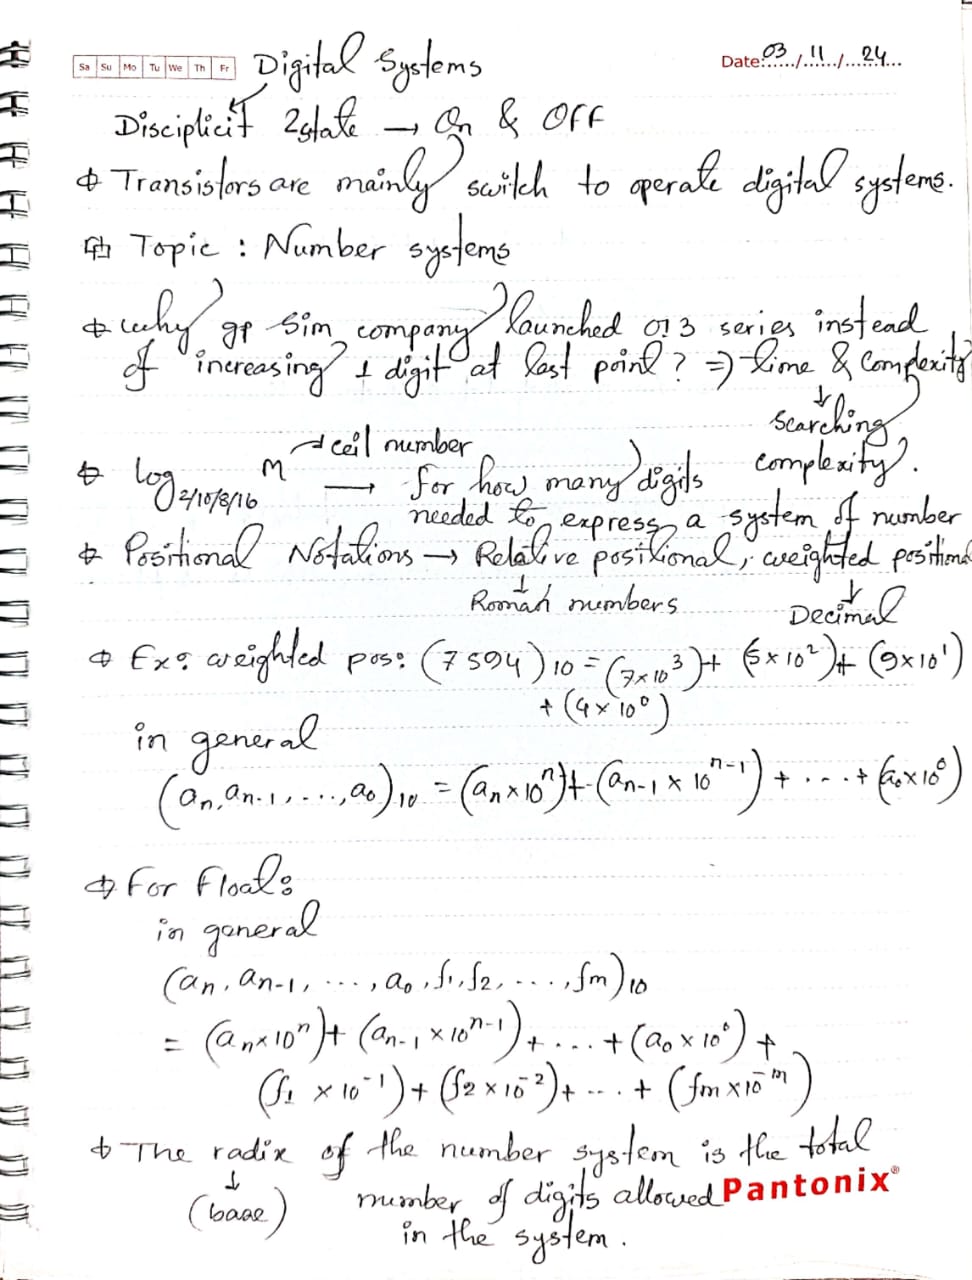 Sa Su Mo Tu We Th Fr Digital Systems Date: 03/11/24
Disciplicit 2state → On & OFF
Transistors are mainly switch to operate digital systems.
Topic : Number systems
why gp Sim company launched 013 series instead
of increasing 1 digit at last point? ⇒ time & Complexity
↓
Searching
complexity.
→ ceil number
log 2/10/8/16 M → for how many digits
needed to express a system of number
Positional Notations → Relative positional, weighted positional
↓ ↓
Roman numbers Decimal
Ex: weighted pos: (7594)10 = (7×10³) + (5×10²) + (9×10¹)
+ (4×10⁰)
in general
(an, an-1, ..., a0)10 = (an×10ⁿ) + (an-1 × 10ⁿ⁻¹) + ... + (a0×10⁰)
For Float:
in general
(an, an-1, ..., a0, f1, f2, ..., fm)10
= (an×10ⁿ) + (an-1 × 10ⁿ⁻¹) + ... + (a0 × 10⁰) +
(f1 × 10⁻¹) + (f2 × 10⁻²) + ... + (fm × 10⁻ᵐ)
The radix of the number system is the total
↓
(base) number of digits allowed Pantonix®
in the system.